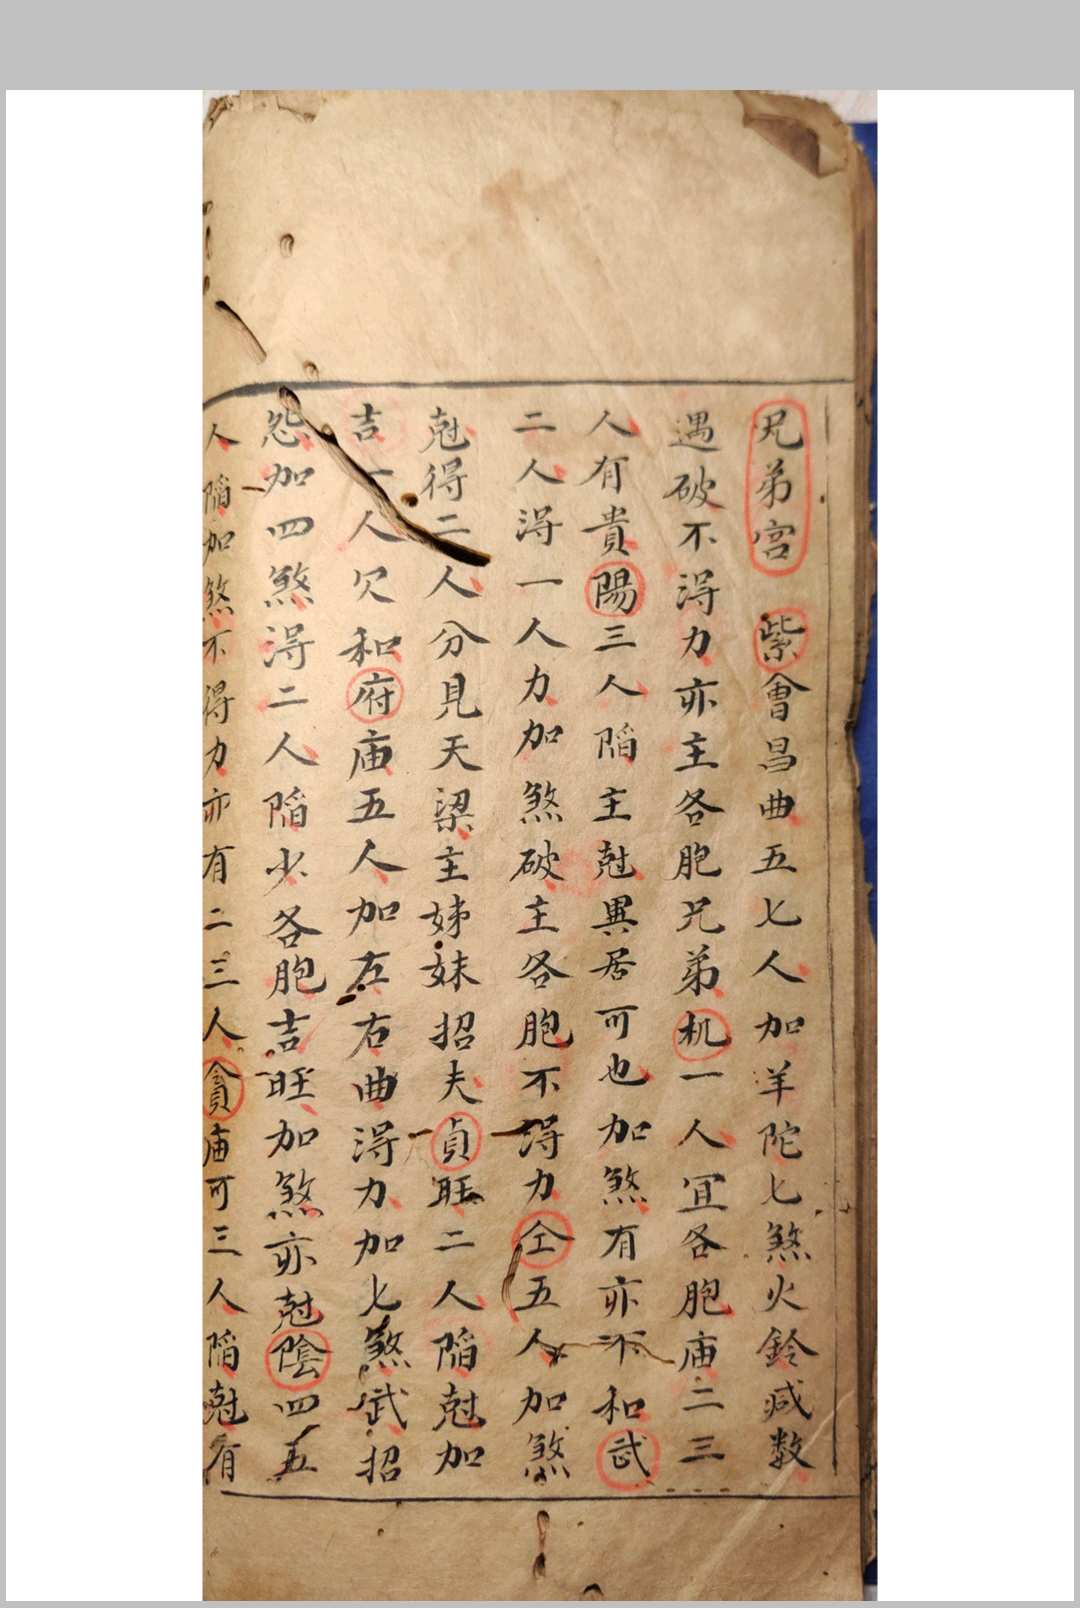 兄弟宮 紫會昌曲五七人加羊陀七煞火鈴减数
遇破不淂力亦主各胞兄弟机一人冝各胞庙二三
人有貴陽三人陷主尅異居可也加煞有亦不和武
二人淂一人力加煞破主各胞不淂力仝五人加煞
尅得二人分見天梁主姊妹招夫貞旺二人陷尅加
吉一人欠和府庙五人加左右曲淂力加七煞武招
怨加四煞淂二人陷少各胞吉旺加煞亦尅陰四五
人陷加煞不得力亦有二三人貪庙可三人陷尅有